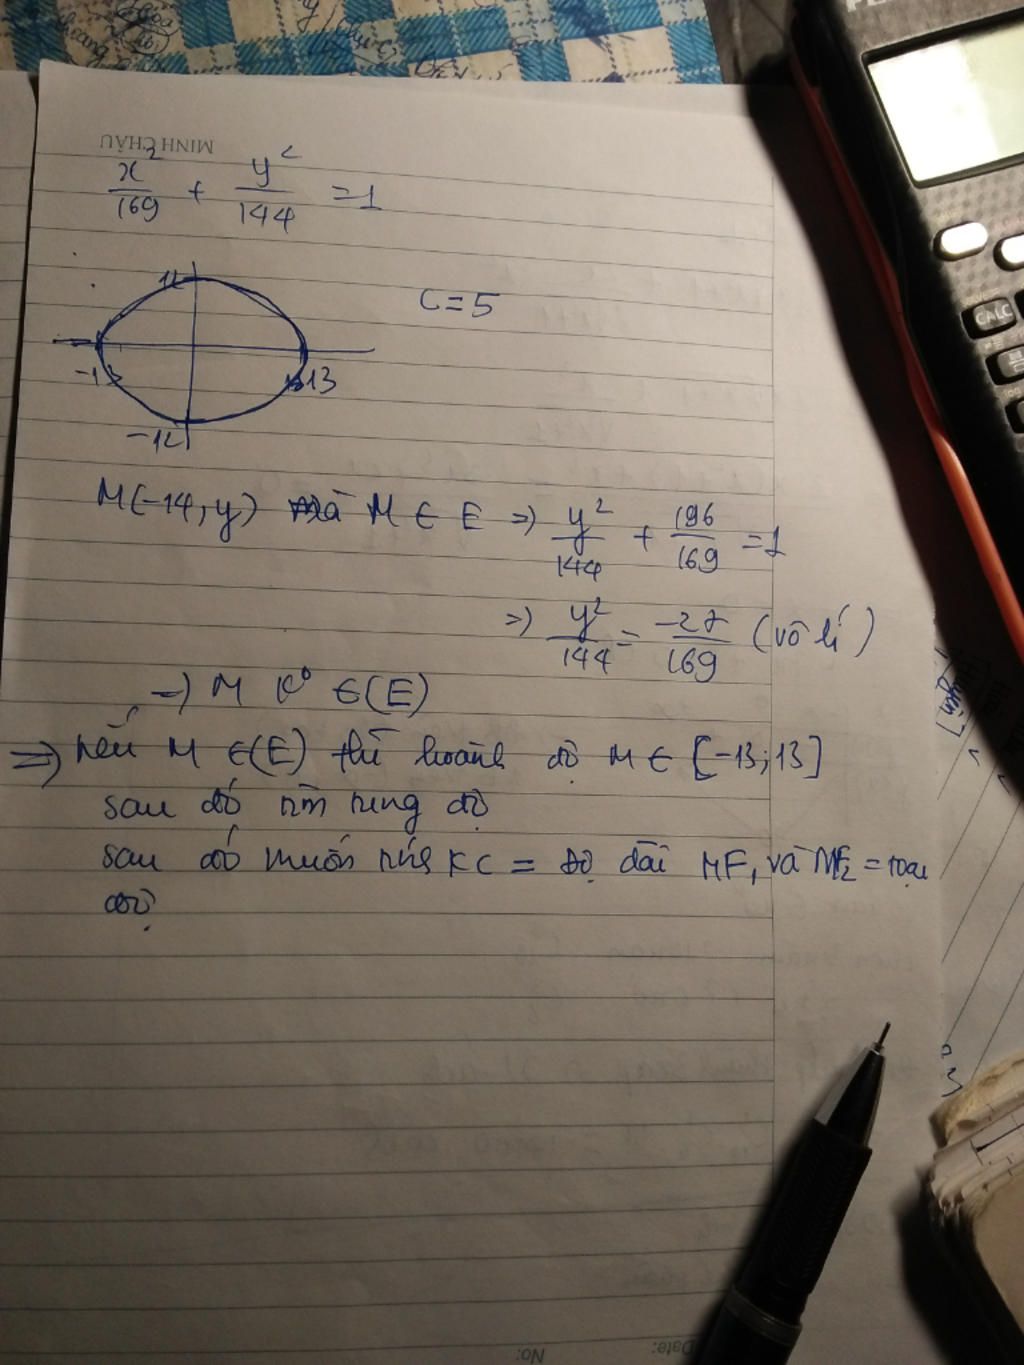 MINH CHÂU
x²/169 + y²/144 = 1
12
C = 5
-13
13
-12
M(-14, y) mà M ∈ E => y²/144 + 196/169 = 1
=> y²/144 = -27/169 (vô lí)
-) M K⁰ ∈ (E)
=> nếu M ∈ (E) thì hoành độ M ∈ [-13; 13]
sau đó tìm tung độ
sau đó muốn tính KC = độ dài MF₁ và MF₂ = toạ
độ
CALC
No:
Date: